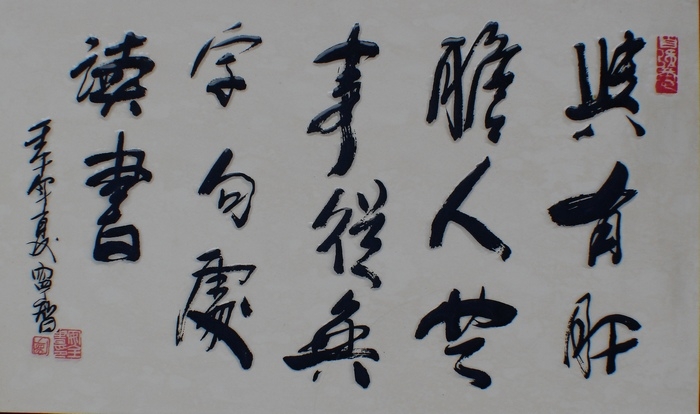 與有肝
膽人共
事從無
字句處
讀書
壬午年夏